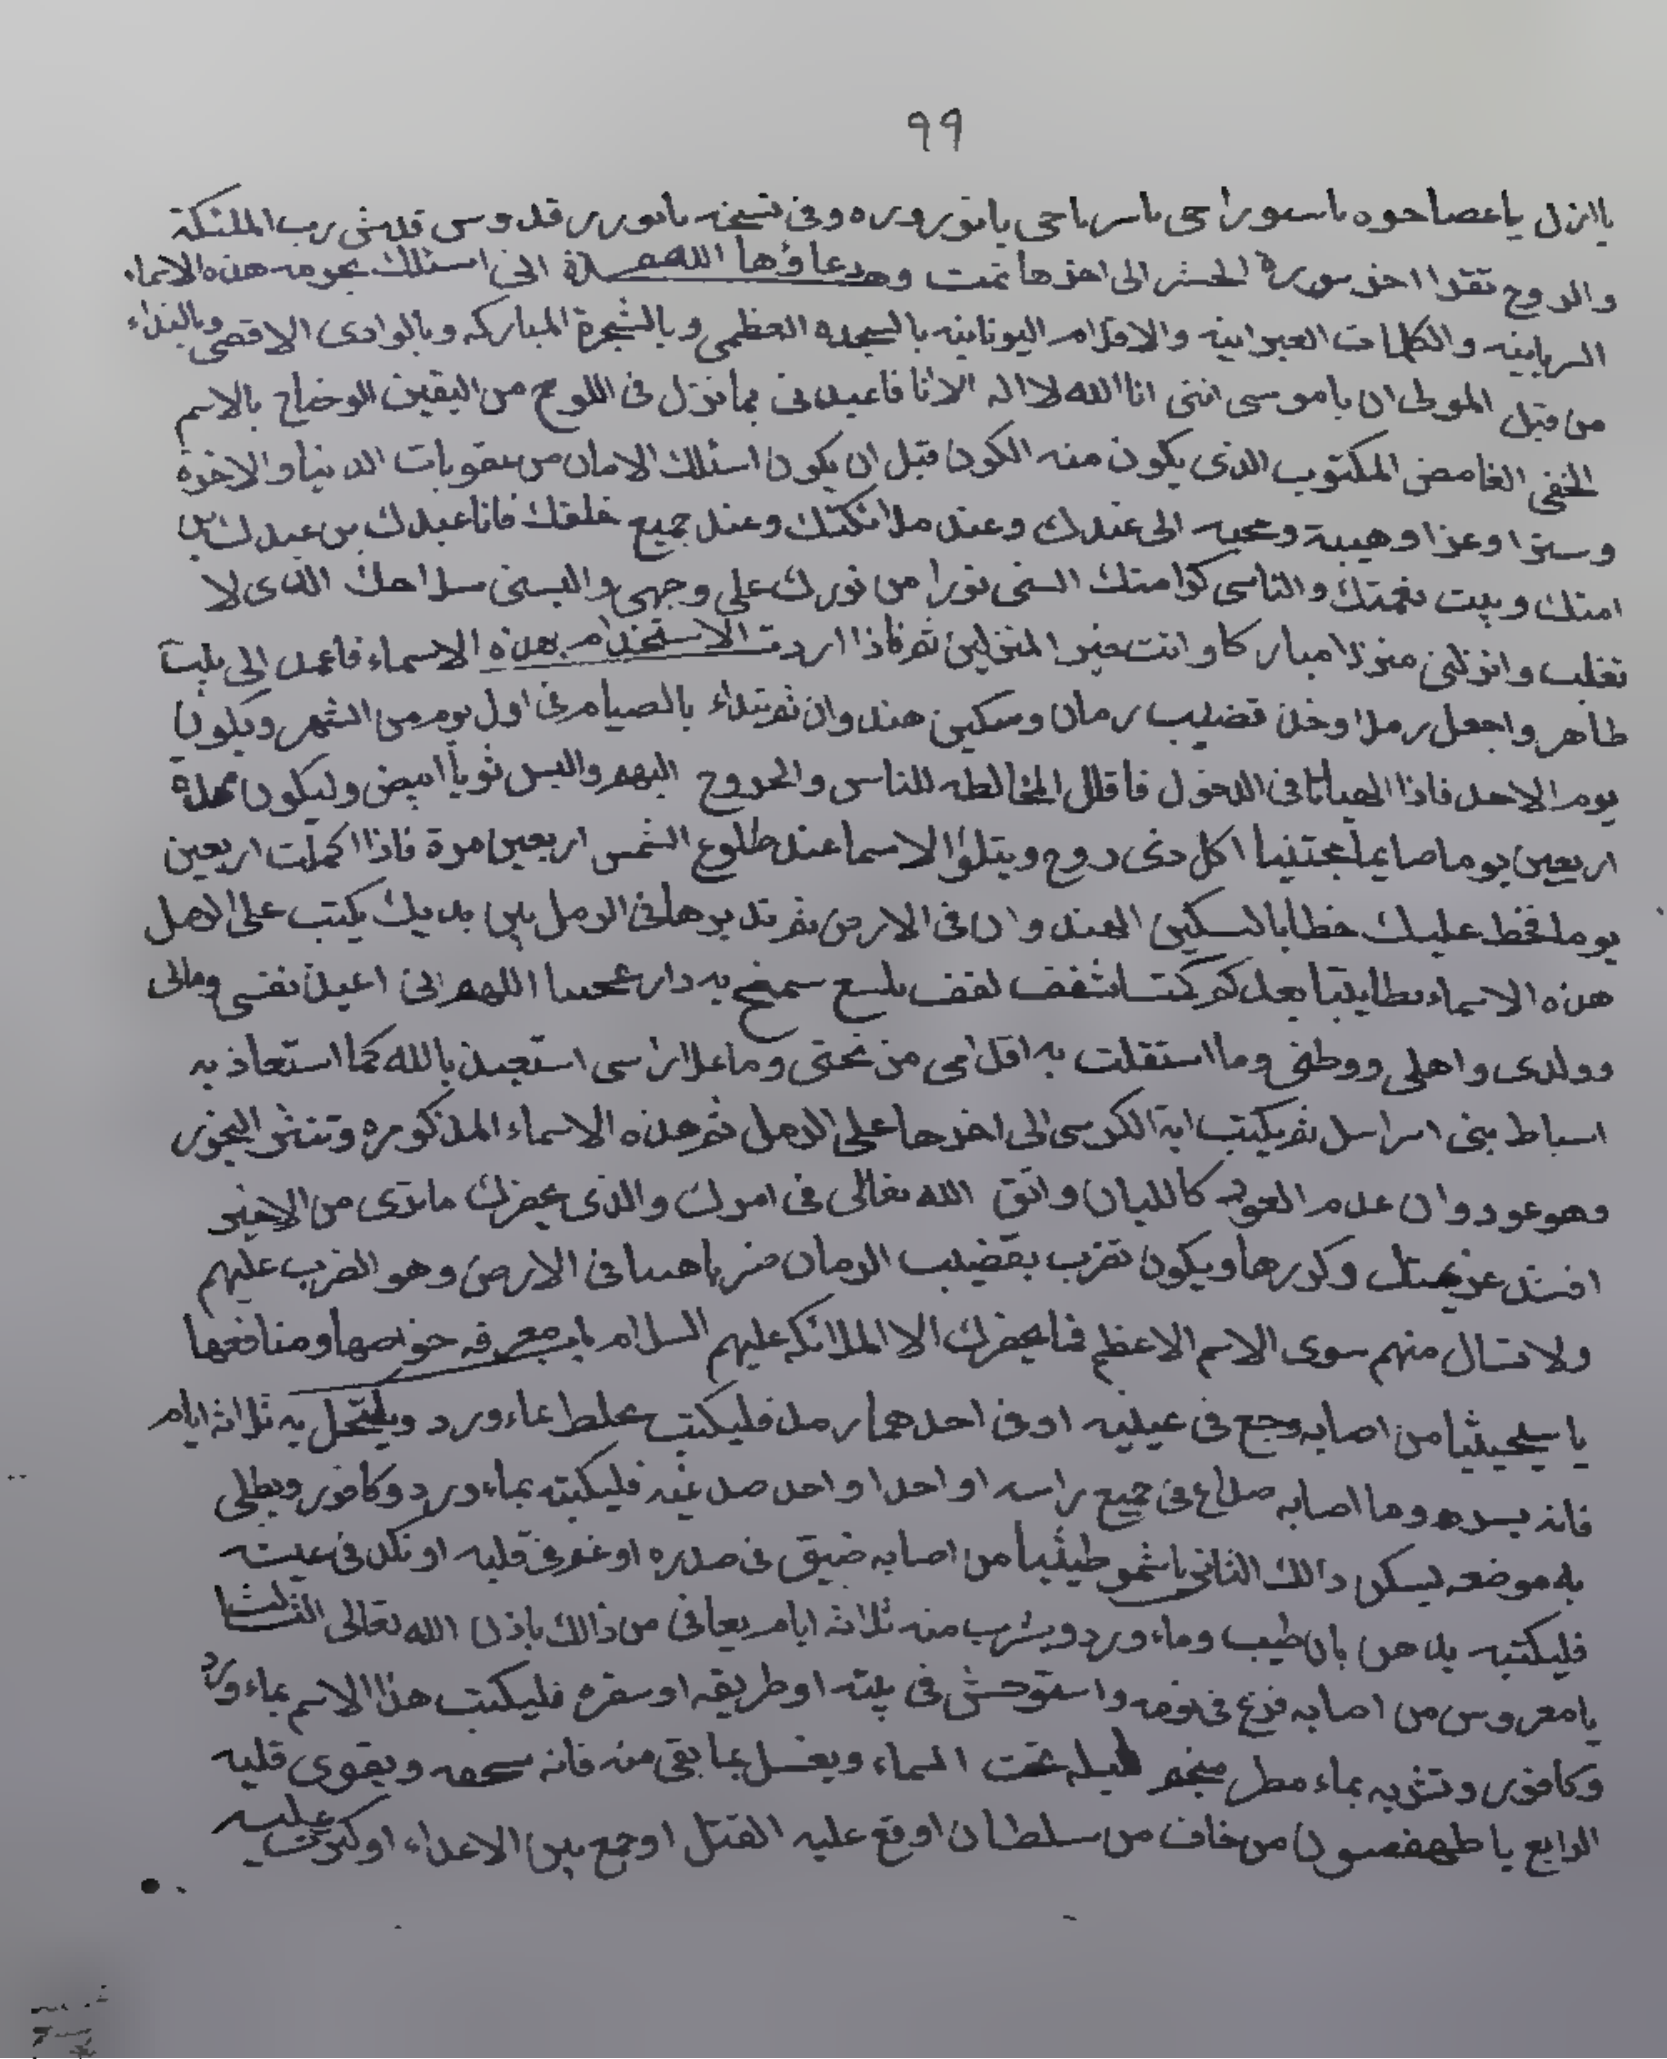 ٩٩
يا انزل يا عصا حوه يا سوراحى يا سرياحى يا نوروره وفى نسخه يا نورر قدوس قدش رب الملئكة
والروح تقرا اخر سورة الحشر الى اخرها تمت وهد دعاؤها اللهم انى اسئلك بحرمه هذه الاسماء
السريانيه والكلمات العبرانيه والاقلام اليونانيه بالسجده العظمى وبالشجرة المباركه وبالوادى الاقصى وبالنداء
من قبل المولى ان يا موسى اننى انا الله لا اله الا انا فاعبدنى بما نزل فى اللوح من اليقين الوضاح بالاسم
الخفى الغامض المكتوب الذى يكون منه الكون قبل ان يكون اسئلك الامان من عقوبات الدنيا والاخرة
وسترا وعزا وهيبة ومحبه الى عندك وعند ملائكتك وعند جميع خلقك فانا عبدك بن عبدك بن
امتك وبيت نعمتك والناسى كرامتك السنى نورا من نورك على وجهى والبسنى سلاحك الذى لا
تغلب وانزلنى منزلا مباركا وانت خير المنزلين ثم فاذا اردت الاستخدام بهذه الاسماء فاعمد الى بيت
طاهر واجعل رملا وخذ قضيب رمان وسكين هندوان ثم تبتداء بالصيام فى اول يوم من الشهر ويكون
يوم الاحد فاذا فى الدخول فاقلل المخالطه للناس والخروج اليهم والبس ثوبا ابيض وليكون
اربعين يوما صايما مجتنبا اكل ذى روح ويتلوا الاسما عند طلوع الشمس اربعين مرة فاذا اكملت اربعين
يوما فخط عليك خطا بالسكين الهندوان فى الارض ثم تديرها فى الرمل بين يديك يكتب على الرمل
هذه الاسماء اللهم انى اعيذ نفسى ومالى
وولدى واهلى ووطنى وما استقلت به اقدامى من تحتى وما علا راسى استعيذ بالله كما استعاذ به
اسباط بنى اسرايل ثم يكتب اية الكرسى الى اخرها على الرمل ثم هذه الاسماء المذكوره وتنشر البخور
وهو عود وان عدم العود كاللبان واتق الله تعالى فى امرك والذى يحضرك ماترى من الاخير
افسد عزيمتك وكررها ويكون تضرب بقضيب الرمان ضربا هينا فى الارض وهو الضرب عليهم
ولا تسال منهم سوى الاسم الاعظم فما يحضرك الا الملائكه عليهم السلام باب معرفه خواصها ومنافعها
يا سلجيثيا من اصابه وجع فى عينيه او فى احدهما رمد فليكتب بماء ورد ويكتحل به ثلاثه ايام
فانه يبره وما اصابه صداع فى جميع راسه او احدا واحد صدغيه فليكتبه بماء ورد وكافور ويطلى
به موضعه يسكن ذالك الثانى ياشمو طيثيا من اصابه ضيق فى صدره او غم فى قلبه او نكد فى عيشه
فليكتبه بدهن بان طيب وماء ورد ويشرب منه ثلاثه ايام يعافى من ذالك باذن الله تعالى الثالث
يا معروس من اصابه فزع فى نومه واستوحش فى بيته او طريقه او سفره فليكتب هذا الاسم بماء ورد
وكافور وتشربه بماء مطر منجم ليله تحت السماء ويغسل بما بقى منه فانه ويقوى قلبه
الرابع يا طهفصون من خاف من سلطان اوقع عليه القتل او جمع بين الاعداء او كبرت عليه